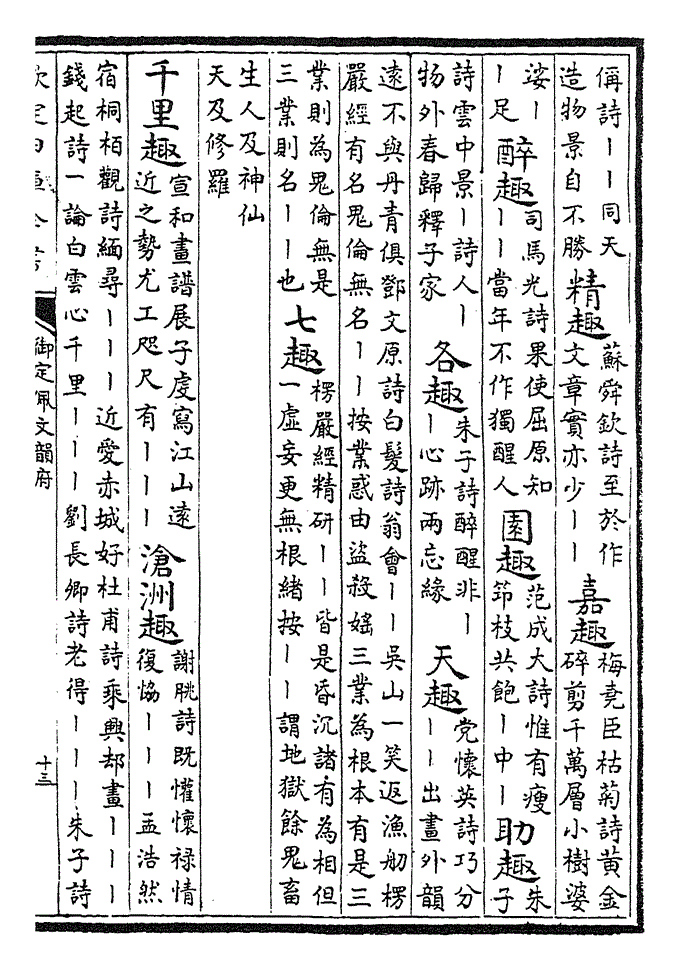 偁詩｜｜同天
造物景自不勝
精趣
蘇舜欽詩至於作
文章實亦少｜｜
嘉趣
梅堯臣枯菊詩黃金
碎剪千萬層小樹婆
娑｜
｜足
醉趣
司馬光詩果使屈原知
｜｜當年不作獨醒人
園趣
范成大詩惟有瘦
笻枝共飽｜中｜
助趣
朱
子
詩雲中景｜詩人｜
物外春歸釋子家
各趣
朱子詩醉醒非｜
｜心跡兩忘緣
天趣
党懷英詩巧分
｜｜出畫外韻
遠不與丹青俱鄧文原詩白髮詩翁會｜｜吳山一笑返漁舠楞
嚴經有名鬼倫無名｜｜按業惑由盜殺婬三業為根本有是三
業則為鬼倫無是
三業則名｜｜也
七趣
楞嚴經精研｜｜皆是昏沉諸有為相但
一虛妄更無根緒按｜｜謂地獄餘鬼畜
生人及神仙
天及修羅
千里趣
宣和畫譜展子虔寫江山遠
近之勢尤工咫尺有｜｜｜
滄洲趣
謝朓詩既懽懷祿情
復恊｜｜｜孟浩然
宿桐栢觀詩緬尋｜｜｜近愛赤城好杜甫詩乘興却畫｜｜｜
錢起詩一論白雲心千里｜｜｜劉長卿詩老得｜｜｜朱子詩
欽定四庫全書
御定佩文韻府
十三